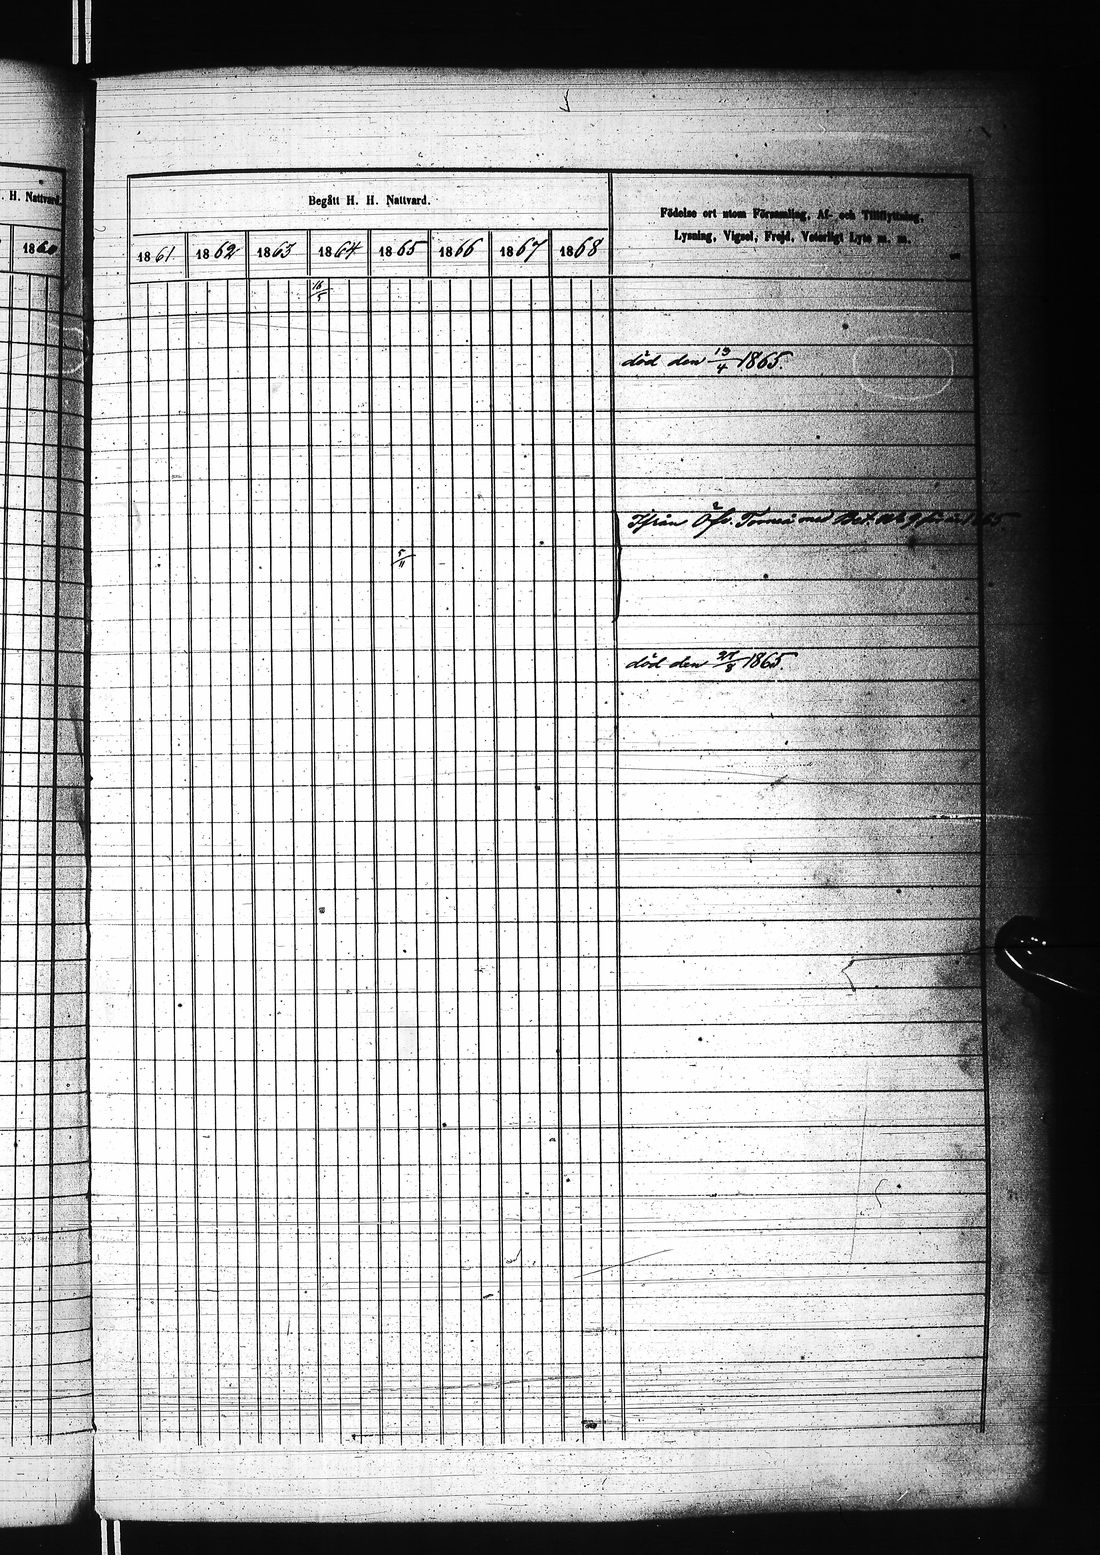 H. Nattvard.
1860
Begått H. H. Nattvard.
Födelse ort utom Församling, Af- och Tillflyttning,
Lysning, Vigsel, Frejd, Veterligt Lyte m. m.
1861 1862 1863 1864 1865 1866 1867 1868
16/5
död den 13/4 1865.
Ifrån Öfv. Torneå med Bet. No 9 för år 1865
5/11
död den 27/8 1865.